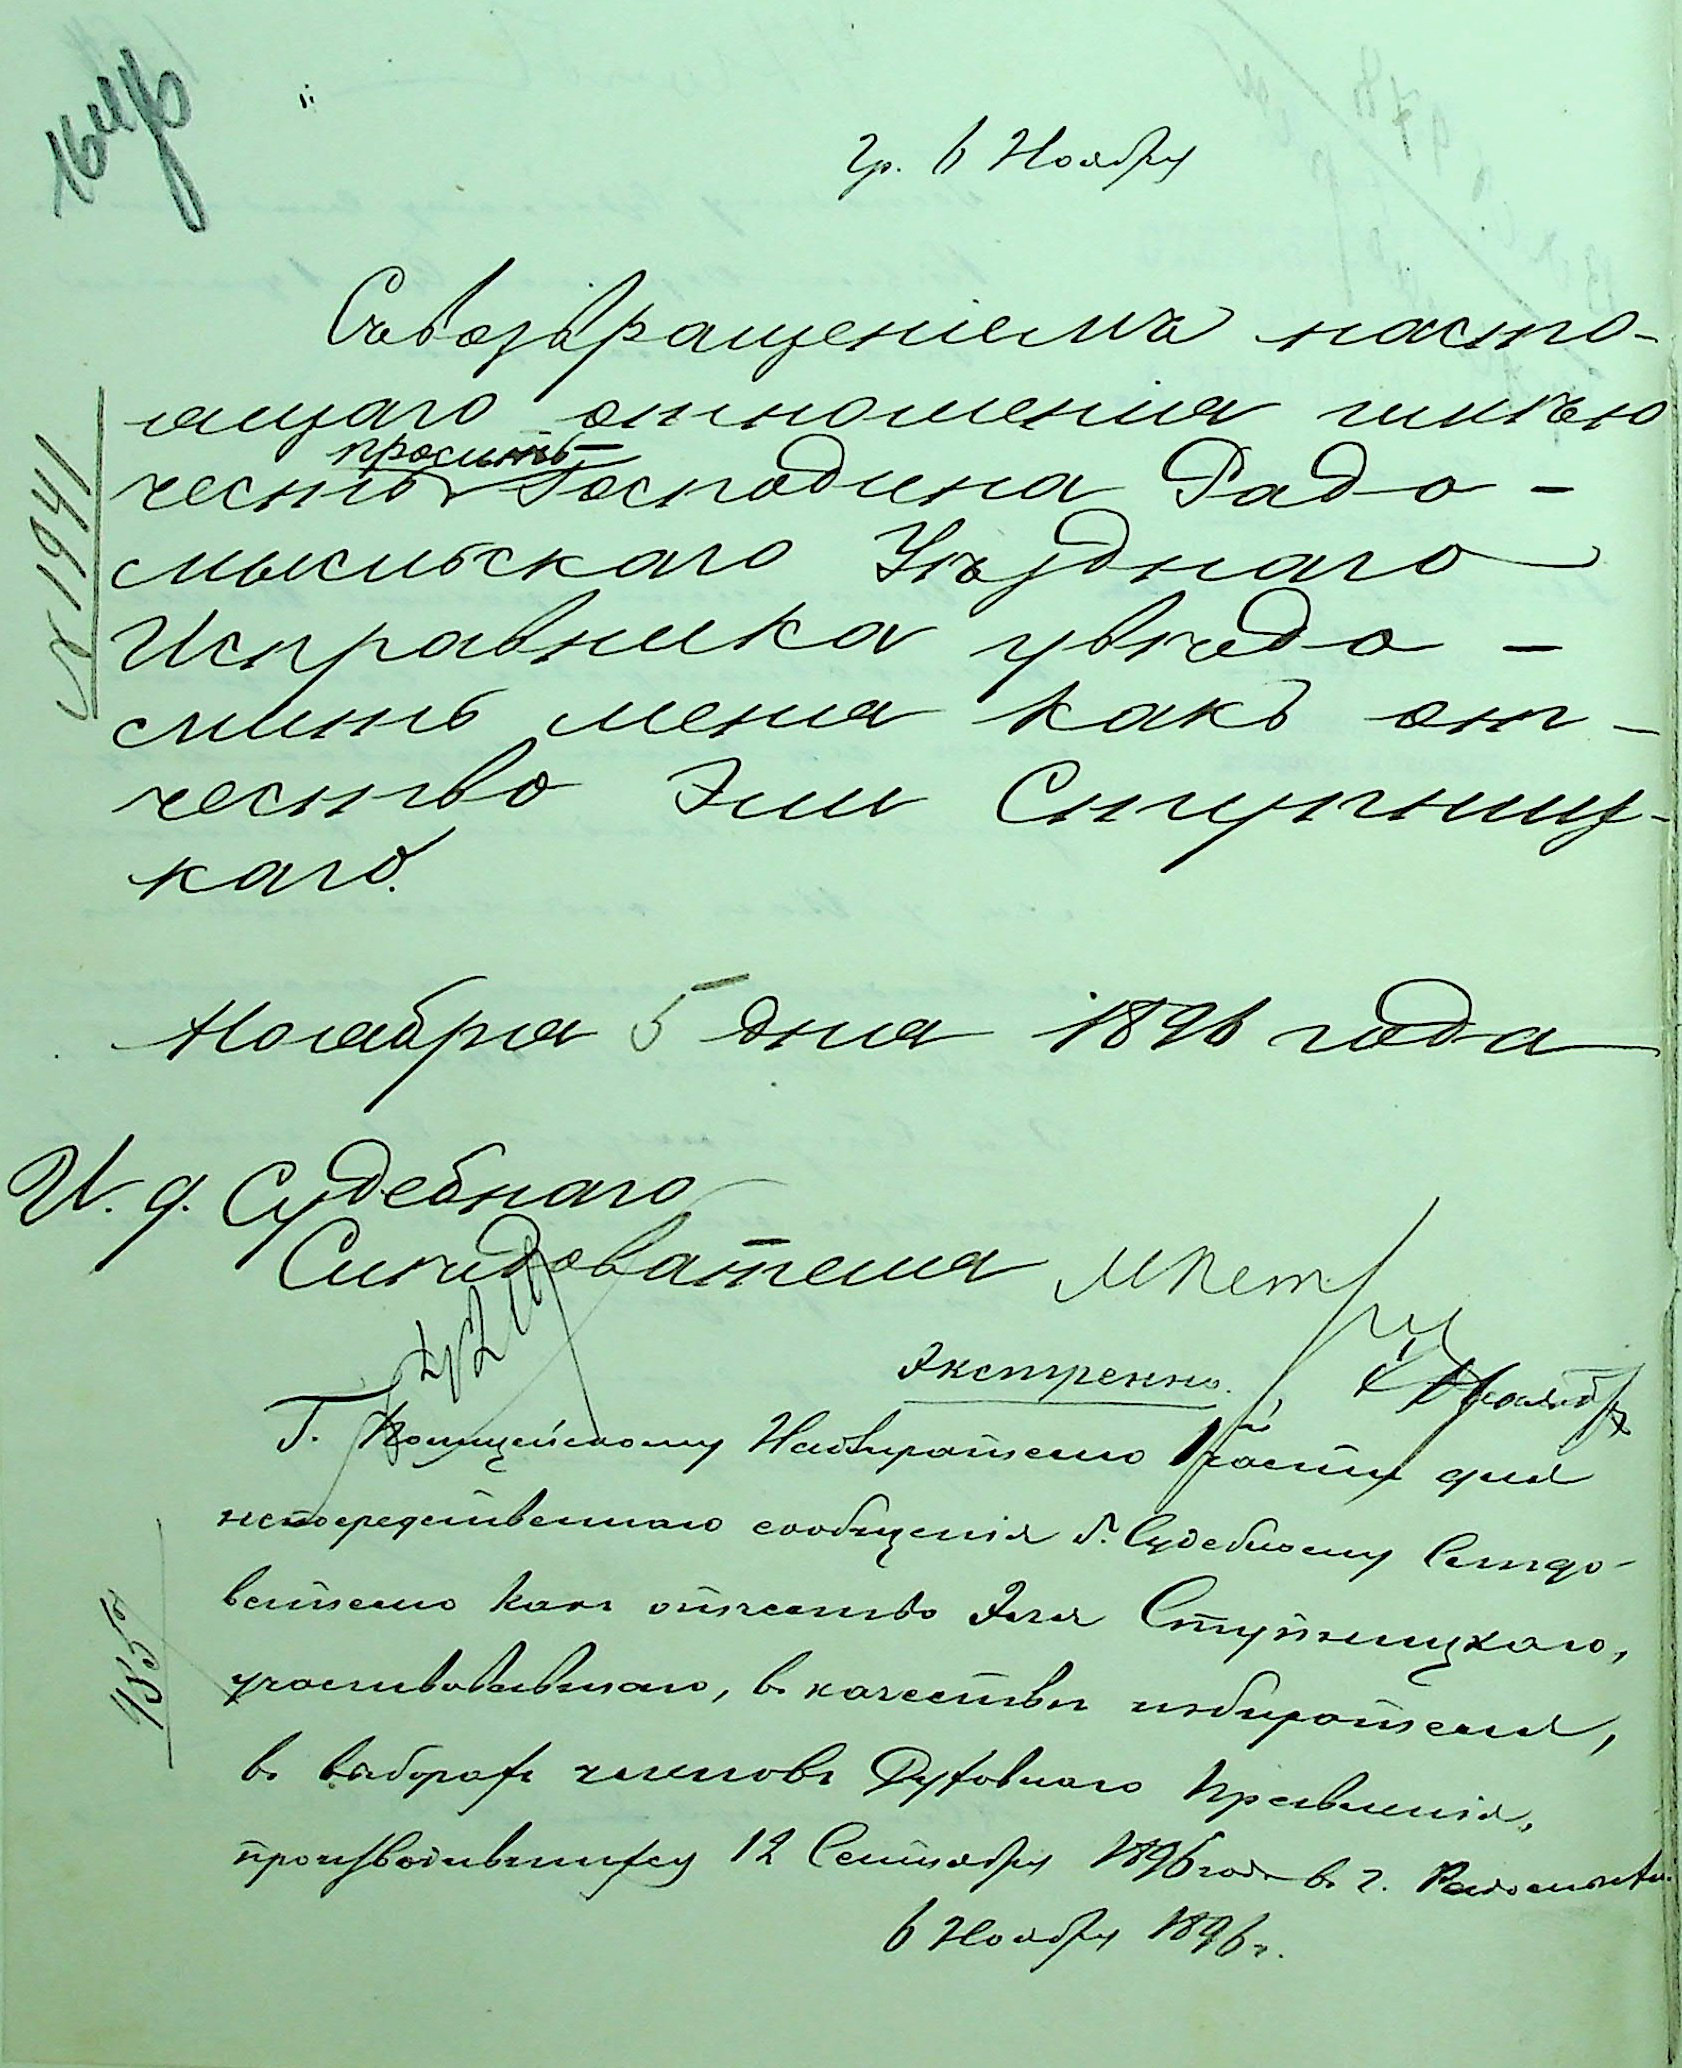 гр. 6 Ноября
Съ возвращеніемъ насто-
ящаго отношенія имѣю
просить
честь Господина Радо-
мысльскаго Уѣзднаго
Исправника увѣдо-
мить меня какъ от-
чество Эли Ступниц-
каго.
№ 1941
Ноября 5 дня 1896 года
И. д. Судебнаго
Слѣдователя
Экстренно.
Г. Полицейскому Надзирателю 1й части для
непосредственнаго сообщенія Г. Судебному Слѣдо-
вателю какъ отчество Эля Ступницкаго,
участвовавшаго, в качествѣ избирателя,
в выборахъ членовъ Духовнаго Правленія,
производившихся 12 Сентября 1896 года в г. Радомыслѣ.
6 Ноября 1896 г.